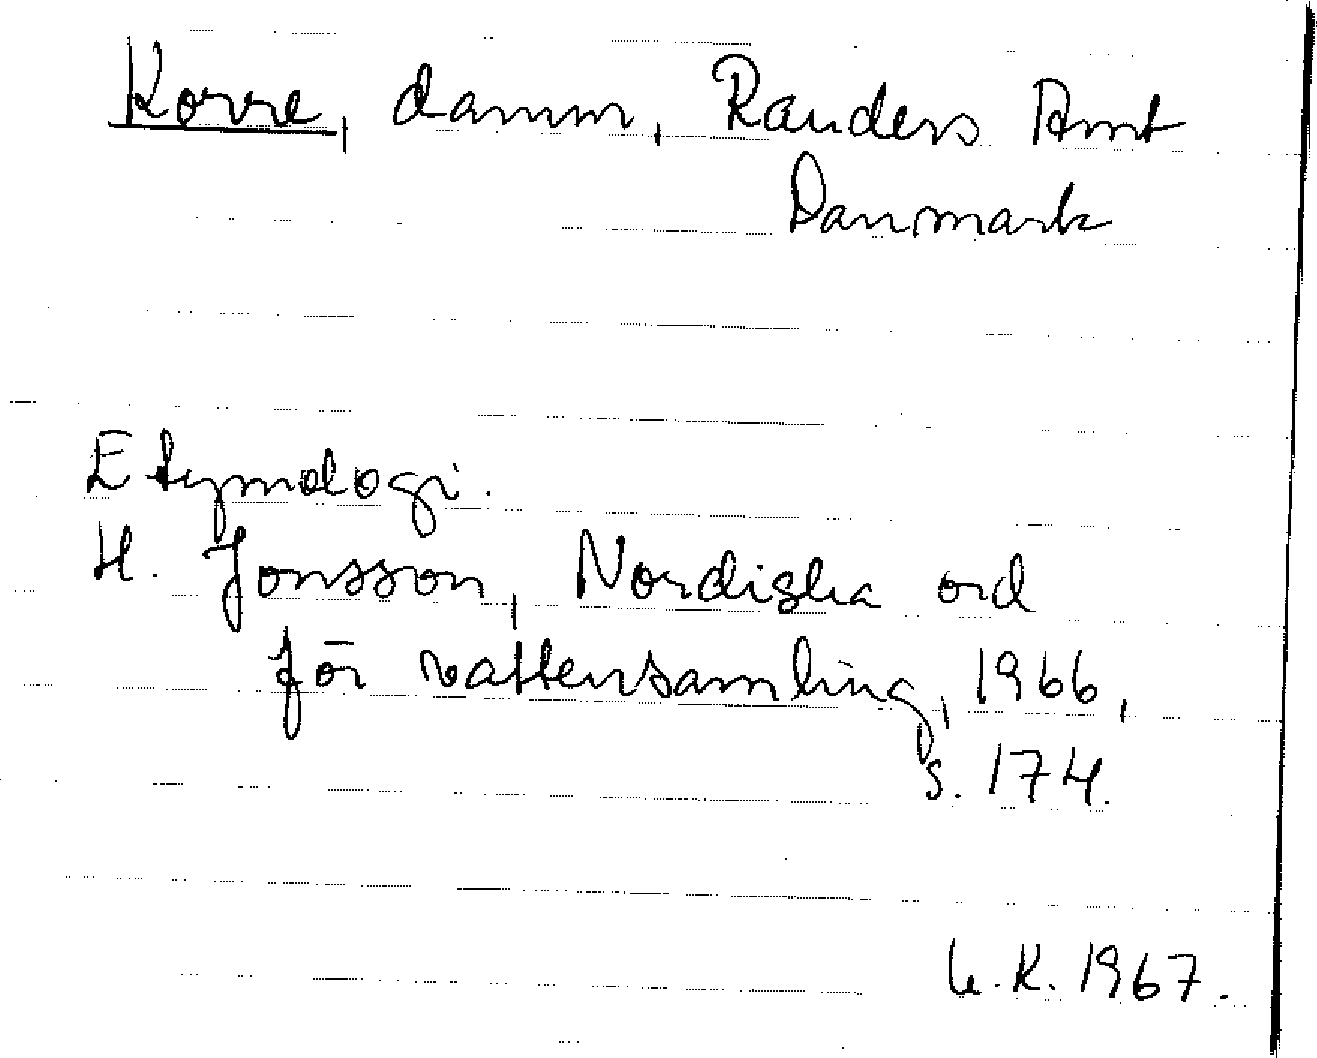 Korre, damm, Randers Amt
Danmark
Etymologi.
H. Jonsson, Nordiska ord
för vattensamling, 1966,
s. 174.
K. 1967.